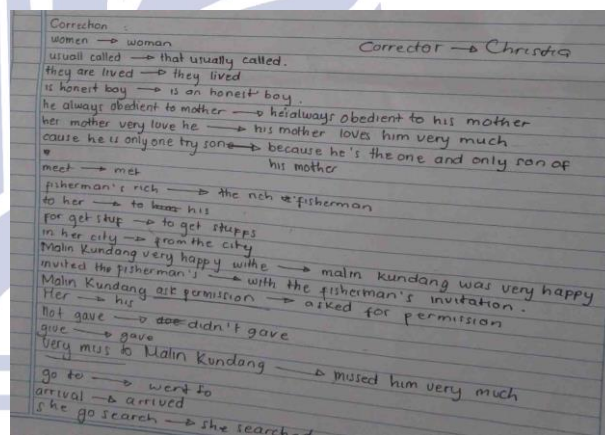 Correction :
Corrector → Christia
women → woman
usuall called → that usually called.
they are lived → they lived
is honest boy → is an honest boy.
he always obedient to mother → he is always obedient to his mother
her mother very love he → his mother loves him very much
cause he is only one try sone → because he's the one and only son of
his mother
meet → met
fisherman's rich → the rich fisherman
to her → to his
for get stuf → to get stuffs
in her city → from the city
Malin Kundang very happy withe → malin kundang was very happy
invited the fisherman's → with the fisherman's invitation.
Malin Kundang ask permission → asked for permission
Her → his
not gave → didn't gave
give → gave
Very miss to Malin Kundang → missed him very much
go to → went to
arrival → arrived
she go search → she searched